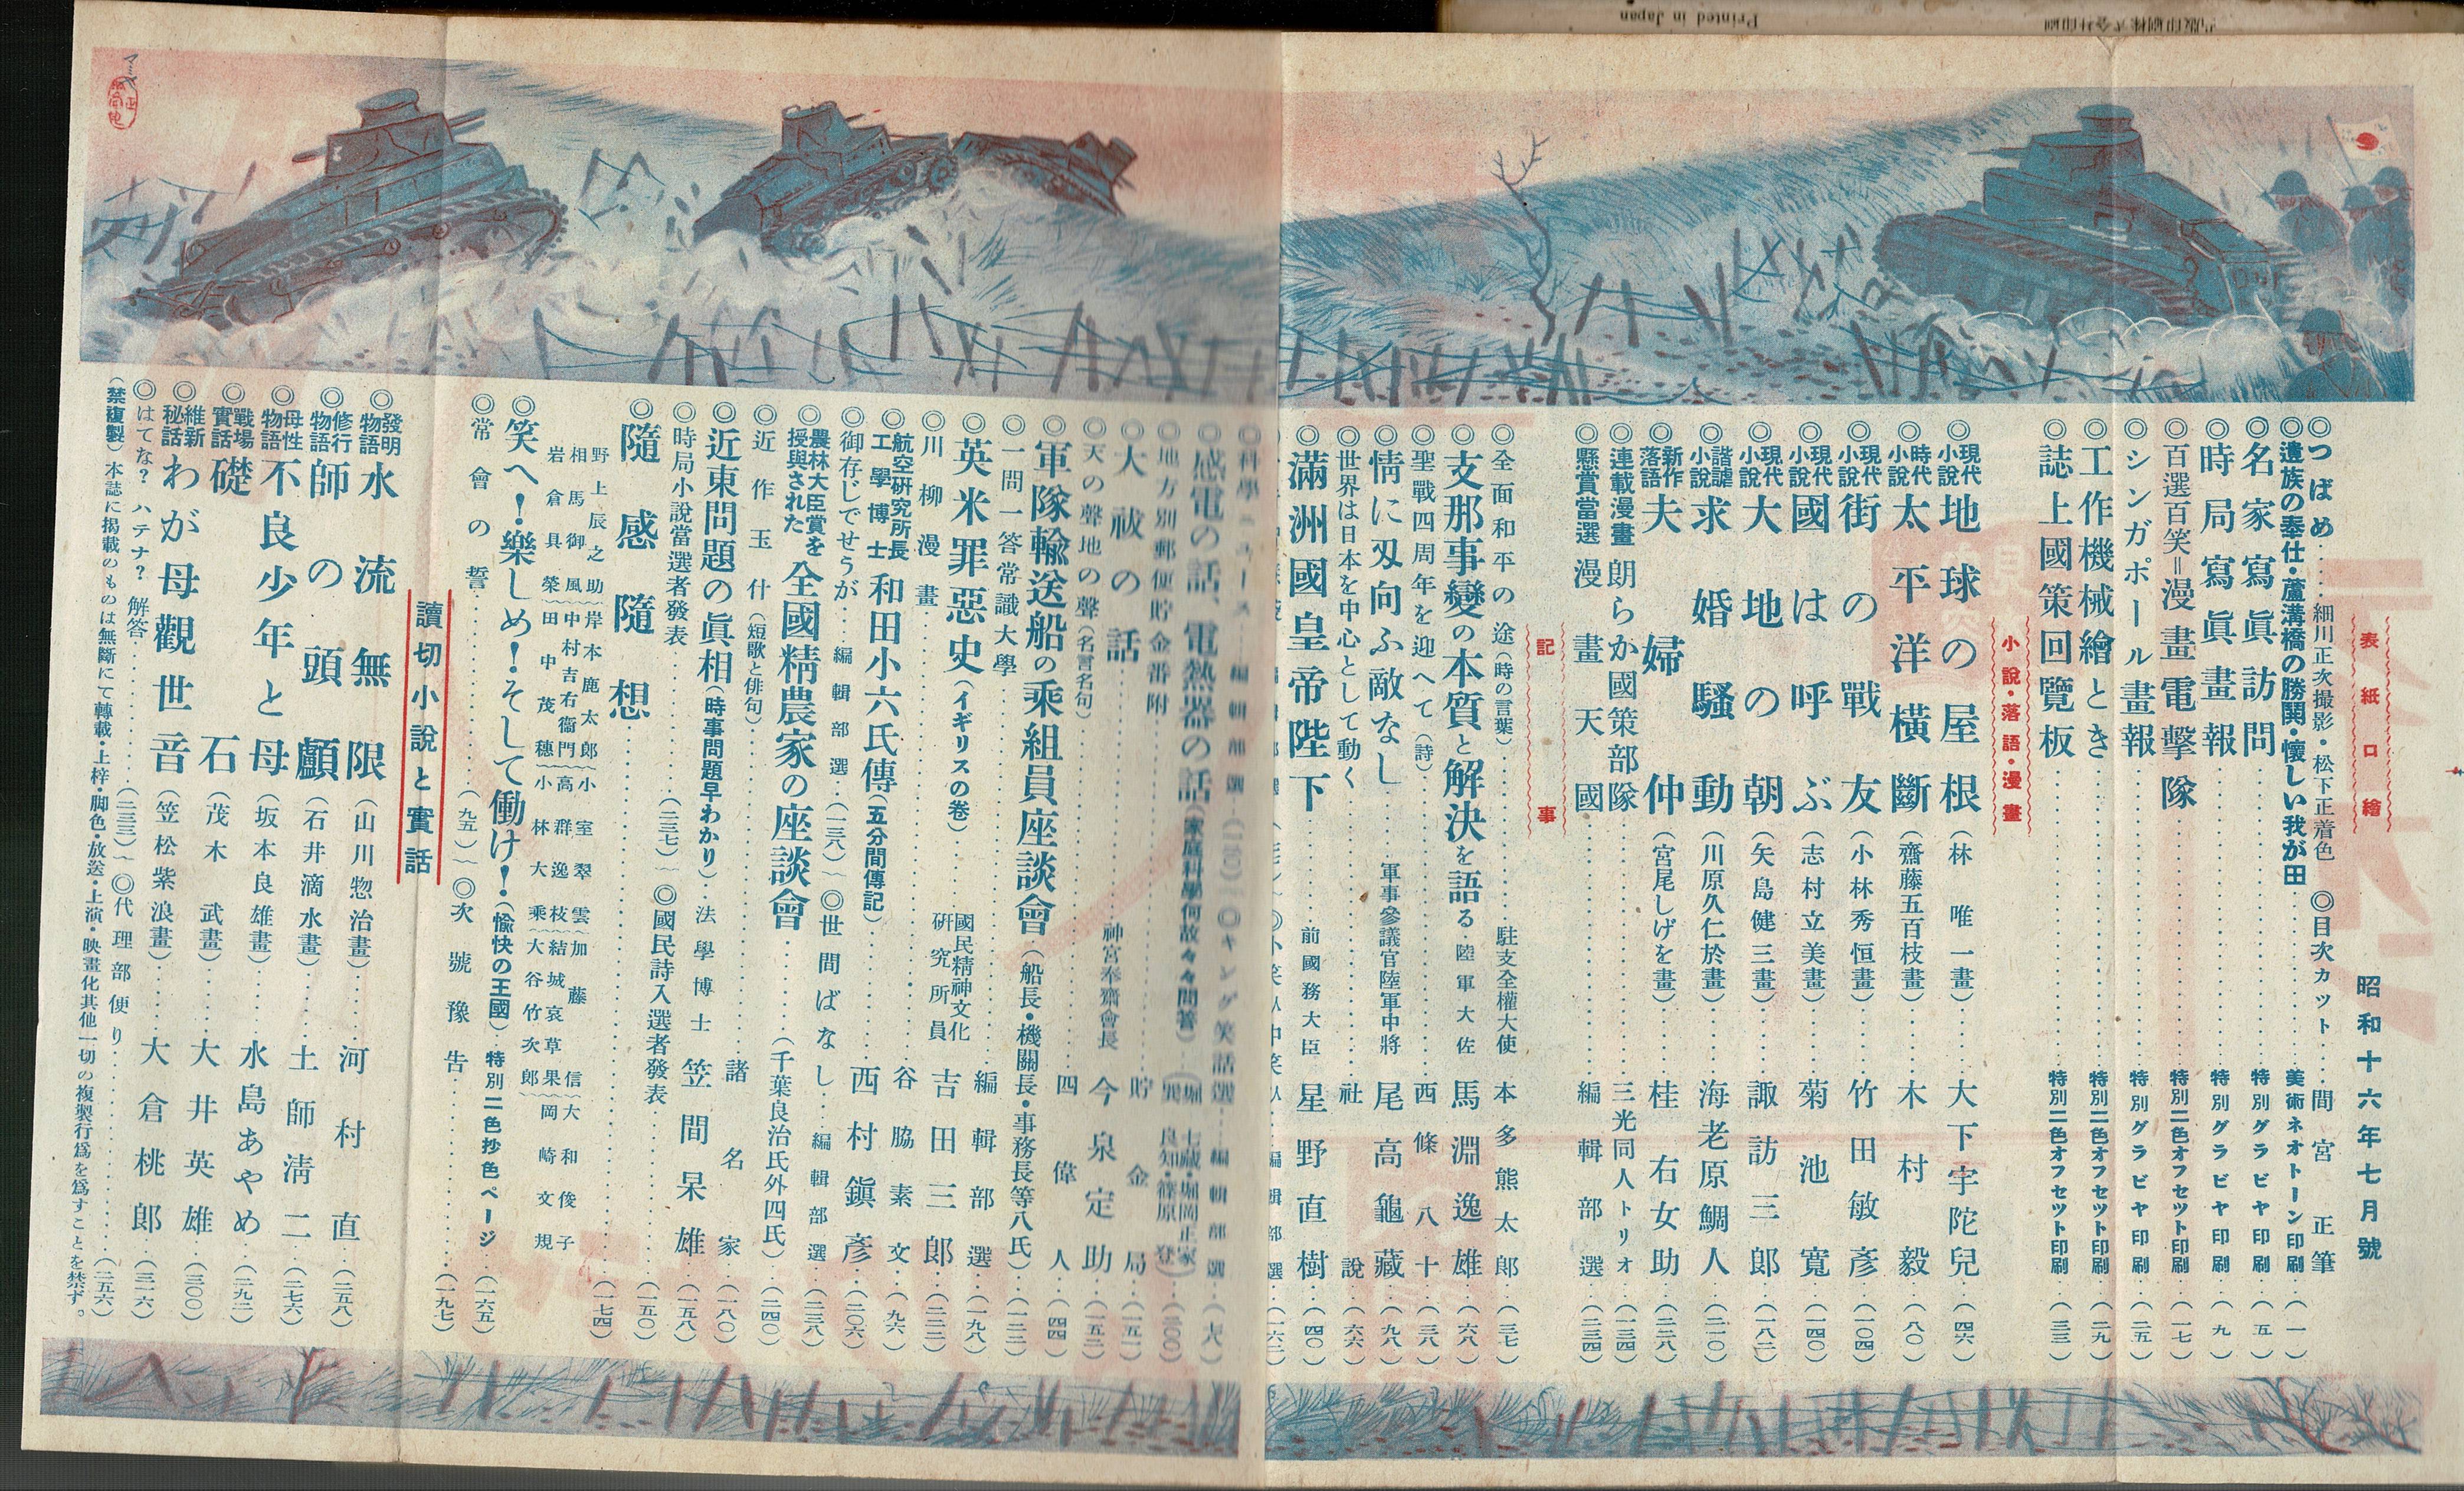 昭和十六年七月號
表紙口繪
◎つばめ……細川正次撮影・松下正着色
◎目次カット……間宮正筆
◎遺族の奉仕・蘆溝橋の勝鬨・懷しい我が田……美術ネオトーン印刷…(一)
◎名家寫眞訪問……特別グラビヤ印刷…(五)
◎時局寫眞畫報……特別グラビヤ印刷…(九)
◎百選百笑=漫畫電擊隊……特別二色オフセット印刷…(一七)
◎シンガポール畫報……特別グラビヤ印刷…(二五)
◎工作機械繪とき……特別二色オフセット印刷…(二九)
◎誌上國策回覽板……特別二色オフセット印刷…(三三)
小說・落語・漫畫
◎現代小說 地球の屋根(林唯一畫)……大下宇陀兒…(四六)
◎時代小說 太平洋橫斷(齋藤五百枝畫)……木村毅…(八〇)
◎現代小說 街の戰友(小林秀恒畫)……竹田敏彥…(一〇四)
◎現代小說 國は呼ぶ(志村立美畫)……菊池寬…(一四〇)
◎現代小說 大地の朝(矢島健三畫)……諏訪三郎…(一八二)
◎諧謔小說 求婚騷動(川原久仁於畫)……海老原鯛人…(二一〇)
◎新作落語 夫婦仲(宮尾しげを畫)……桂右女助…(二二八)
◎連載漫畫 朗らか國策部隊……三光同人トリオ…(一三四)
◎懸賞當選 漫畫天國……編輯部選…(二三四)
記事
◎全面和平の途(時の言葉)……駐支全權大使 本多熊太郎…(三七)
◎支那事變の本質と解決を語る…陸軍大佐 馬淵逸雄…(六八)
◎聖戰四周年を迎へて(詩)……西條八十…(三八)
◎情に刄向ふ敵なし……軍事參議官陸軍中將 尾高龜藏…(九八)
◎世界は日本を中心として動く……社說…(六六)
◎滿洲國皇帝陛下……前國務大臣 星野直樹…(四〇)
◎科學ニュース…編輯部選…(二六〇)〜◎キング笑話選……編輯部選…(七八)
◎感電の話、電熱器の話(家庭科學何故々々問答)
◎地方別郵便貯金番附……貯金局…(一五一)
◎大祓の話……神宮奉齋會長 今泉定助…(一五二)
◎天の聲地の聲(名言名句)……四偉人…(四四)
◎軍隊輸送船の乘組員座談會(船長・機關長・事務長等八氏)…(一二二)
◎一問一答常識大學……編輯部選…(一九八)
◎英米罪惡史(イギリスの卷)……國民精神文化研究所員 吉田三郎…(二二二)
◎川柳漫畫……谷脇素文…(九六)
◎航空硏究所長工學博士 和田小六氏傳(五分間傳記)……西村鎭彥…(二〇六)
◎御存じでせうが…編輯部選…(一三八)〜◎世間ばなし…編輯部選…(二三八)
◎農林大臣賞を授與された 全國精農家の座談會……(千葉良治氏外四氏)…(二四〇)
◎近作玉什(短歌と俳句)……諸名家…(一八〇)
◎近東問題の眞相(時事問題早わかり)…法學博士 笠間杲雄…(一五八)
◎時局小說當選者發表……(二三七)〜◎國民詩入選者發表……(一五〇)
◎隨感隨想……(一七四)
野上辰之助〜岸本鹿太郎〜小室翠雲〜加藤信〜大和俊子
相馬御風〜中村吉右衞門〜高群逸枝〜結城哀草果〜岡崎文規
岩倉具榮〜田中茂穗〜小林大乘〜大谷竹次郎
◎笑へ!樂しめ!そして働け!(愉快の王國)…特別二色抄色ページ…(一六五)
◎常會の誓……(九五)〜◎次號豫告……(一九七)
讀切小說と實話
◎發明物語 水流無限(山川惣治畫)……河村直…(二五八)
◎修行物語 師の頭顱(石井滴水畫)……土師淸二…(二七六)
◎母性物語 不良少年と母(坂本良雄畫)……水島あやめ…(二九二)
◎戰場實話 礎石(茂木武畫)……大井英雄…(三〇〇)
◎維新秘話 わが母觀世音(笠松紫浪畫)……大倉桃郎…(三一六)
◎はてな?ハテナ?解答……(二三三)〜◎代理部便り……(二五六)
(禁複製)本誌に揭載のものは無斷にて轉載・上梓・脚色・放送・上演・映畫化其他一切の複製行爲を爲すことを禁ず。
Printed in Japan